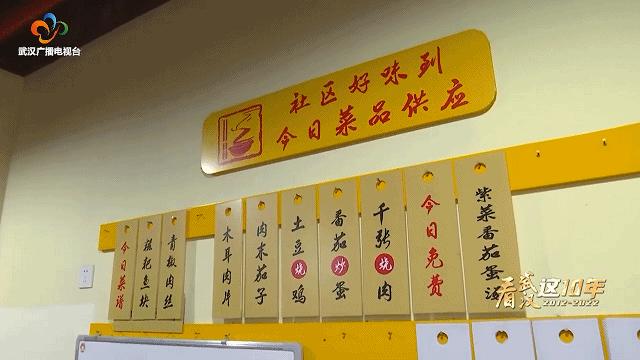 武汉广播电视台
社区好味到
今日菜品供应
今日菜谱
糍粑鱼块
青椒肉丝
木耳肉片
肉末茄子
土豆烧鸡
番茄炒蛋
千张烧肉
今日免费
紫菜番茄蛋汤
看武汉这10年
2012-2022